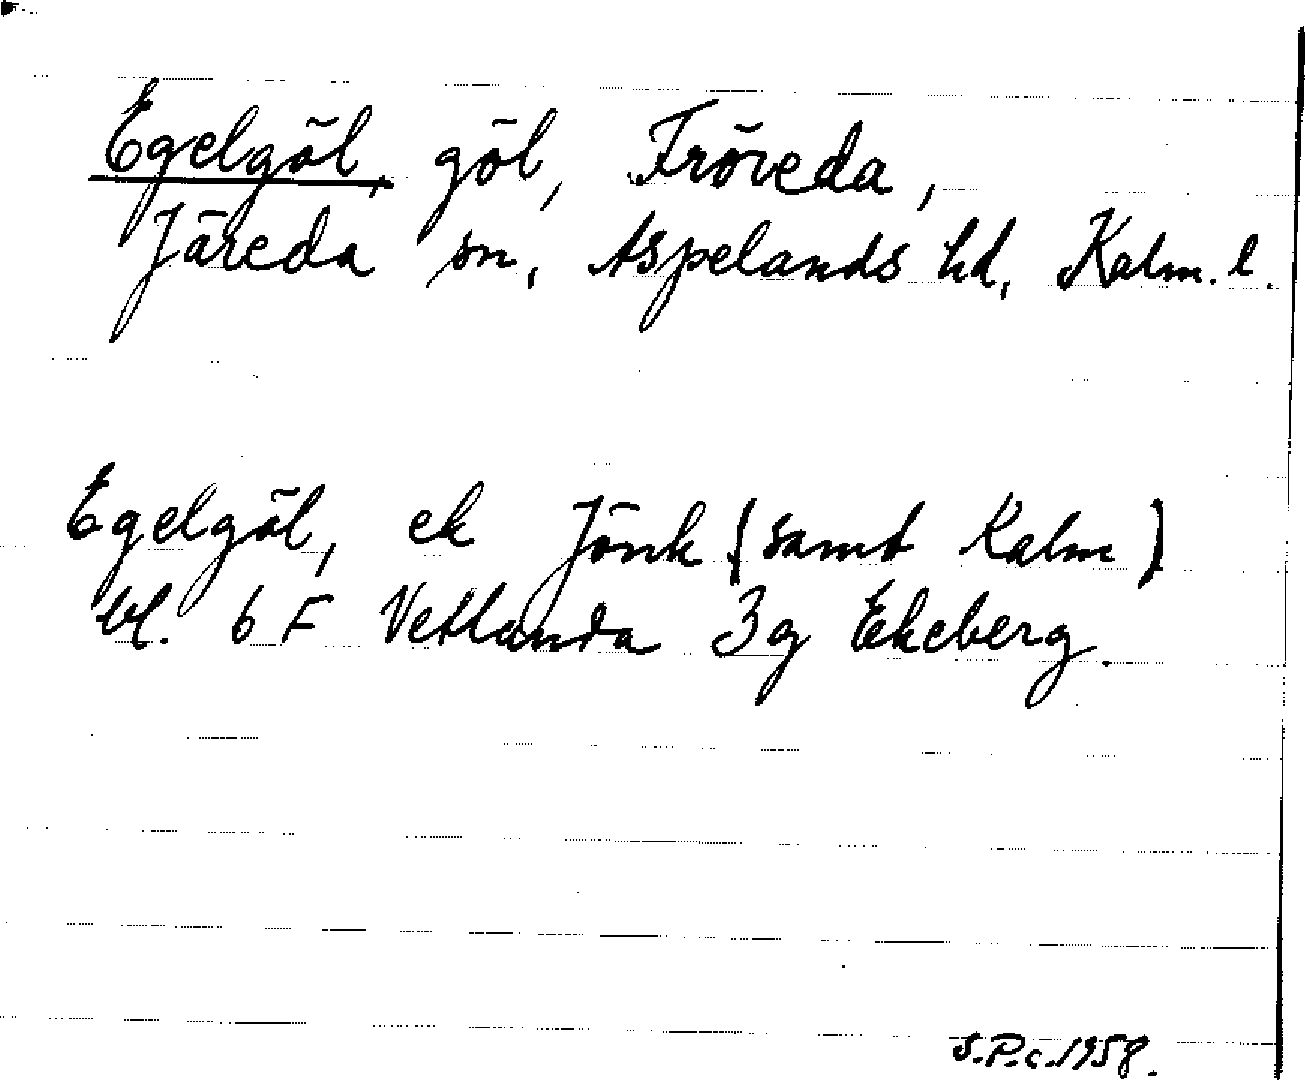 Egelgöl, göl, Fröreda,
Järeda sn, Aspelands hd, Kalm. l.
Egelgöl, ek Jönk (samt Kalm)
bl. 6 F Vetlanda 3g Ekeberg.
S.P.c.1958.